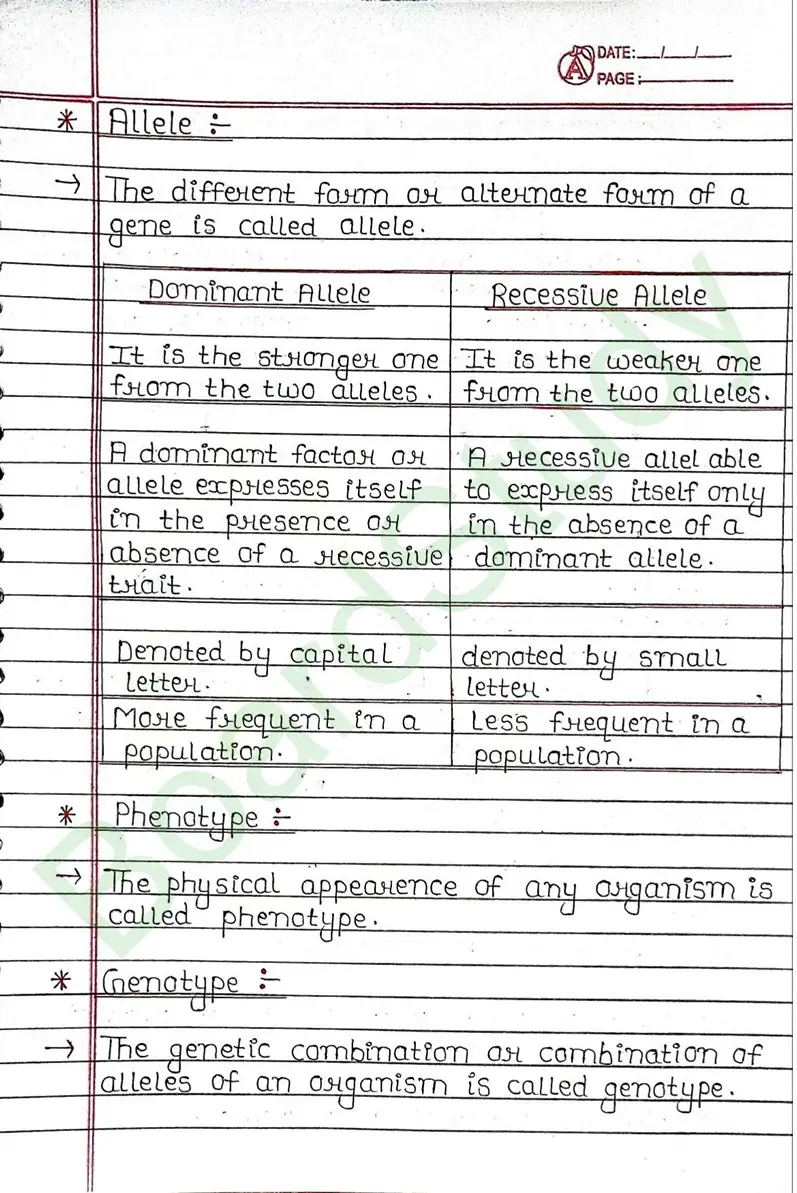 DATE: __/__/__
PAGE:
* Allele :-
→ The different form or alternate form of a
gene is called allele.
Dominant Allele
Recessive Allele
It is the stronger one
from the two alleles.
It is the weaker one
from the two alleles.
A dominant factor or
allele expresses itself
in the presence or
absence of a recessive
trait.
A recessive allel able
to express itself only
in the absence of a
dominant allele.
Denoted by capital
letter.
denoted by small
letter.
More frequent in a
population.
Less frequent in a
population.
* Phenotype :-
→ The physical appearence of any organism is
called phenotype.
* Genotype :-
→ The genetic combination or combination of
alleles of an organism is called genotype.
BoardStudy